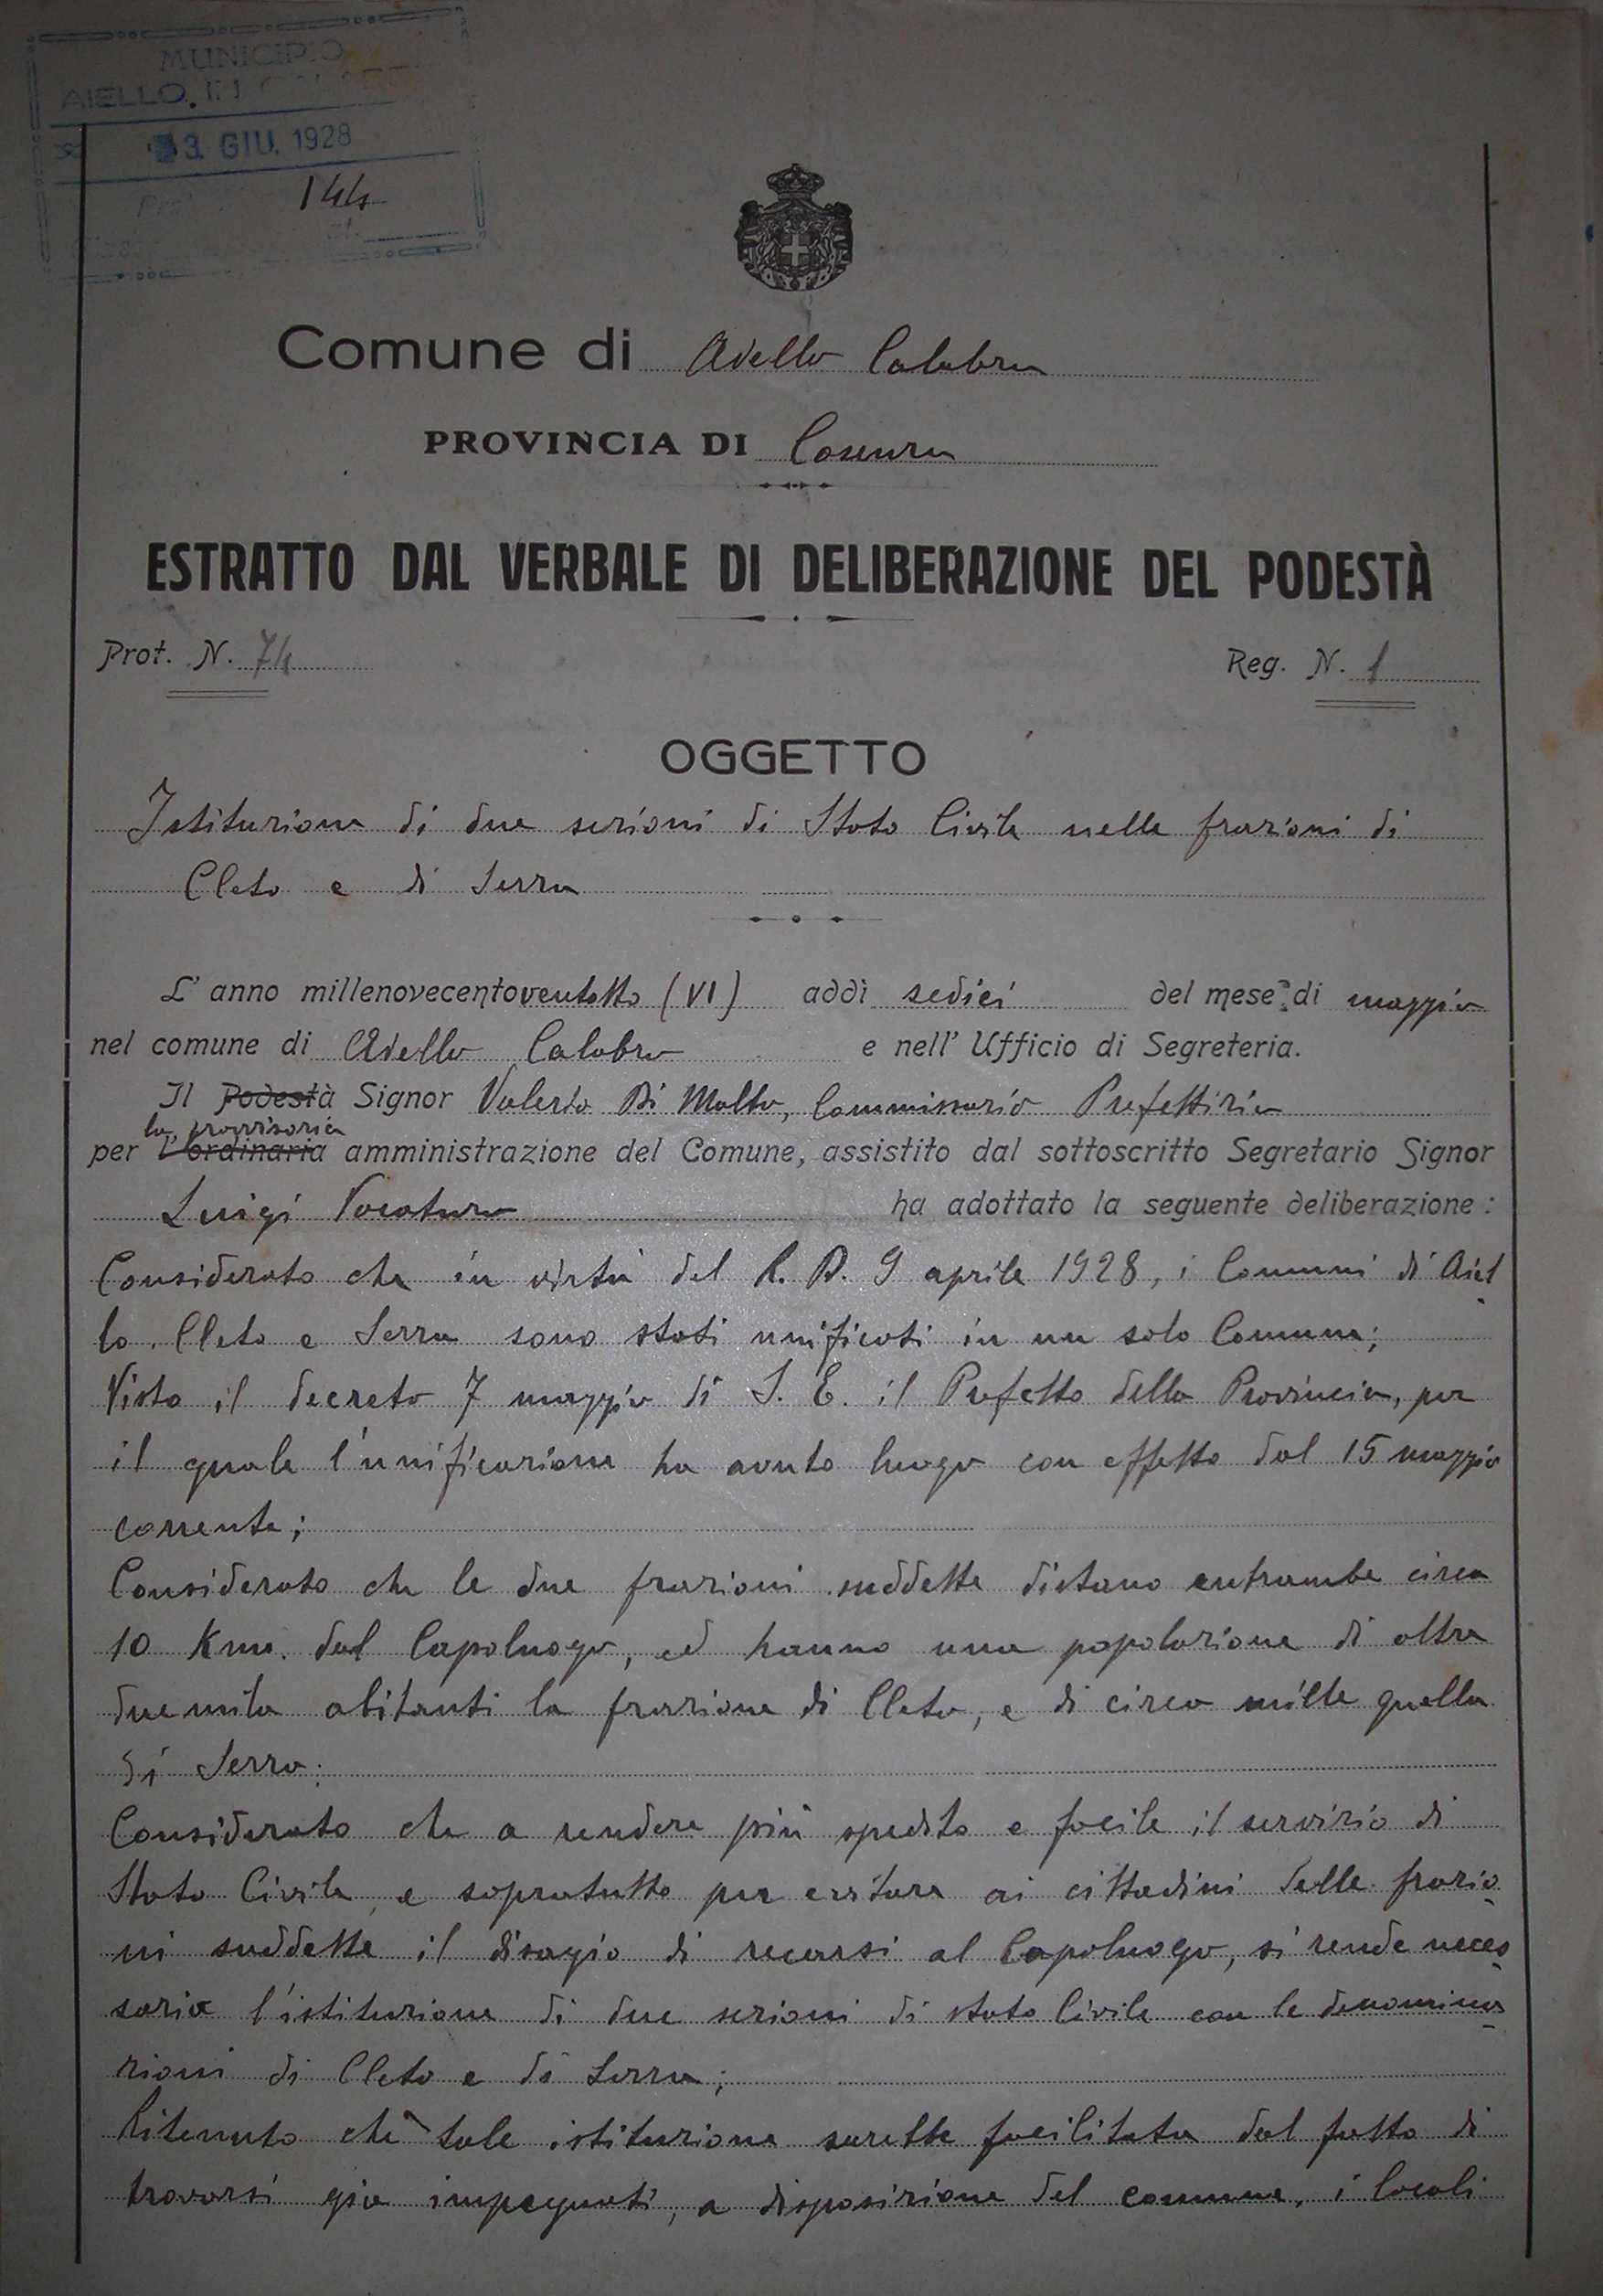 MUNICIPIO
AIELLO IN
3. GIU. 1928
144
Comune di Aiello Calabro
PROVINCIA DI Cosenza
ESTRATTO DAL VERBALE DI DELIBERAZIONE DEL PODESTÀ
Prot. N. 74 Reg. N. 1
OGGETTO
Istituzione di due sezioni di Stato Civile nelle frazioni di
Cleto e di Serra
L'anno millenovecentoventotto (VI) addì sedici del mese di maggio
nel comune di Aiello Calabro e nell'Ufficio di Segreteria.
Il Podestà Signor Valerio Di Malta, Commissario Prefettizio
la provvisoria
per l'ordinaria amministrazione del Comune, assistito dal sottoscritto Segretario Signor
Luigi Vocaturo ha adottato la seguente deliberazione:
Considerato che in virtù del R. D. 9 aprile 1928, i Comuni di Aiel
lo, Cleto e Serra sono stati unificati in un solo Comune;
Visto il decreto 7 maggio di S. E. il Prefetto della Provincia, per
il quale l'unificazione ha avuto luogo con effetto dal 15 maggio
corrente;
Considerato che le due frazioni suddette distano entrambe circa
10 Km. dal Capoluogo, ed hanno una popolazione di oltre
duemila abitanti la frazione di Cleto, e di circa mille quella
di Serra;
Considerato che a rendere più spedito e facile il servizio di
Stato Civile, e sopratutto per evitare ai cittadini delle frazio
ni suddette il disagio di recarsi al Capoluogo, si rende neces
saria l'istituzione di due sezioni di stato Civile con le denomina
zioni di Cleto e di Serra;
Ritenuto che tale istituzione sarebbe facilitata dal fatto di
trovarsi già impegnati, a disposizione del comune, i locali